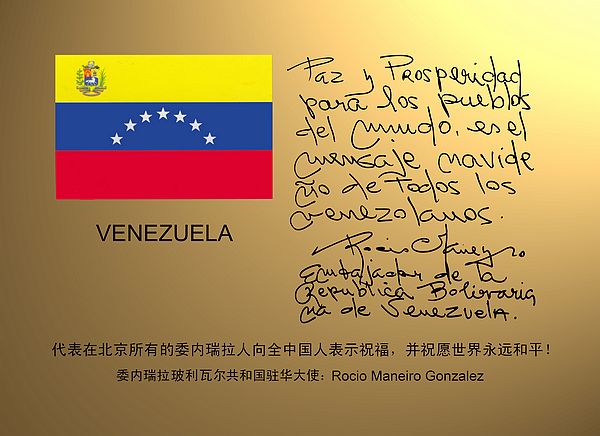 Paz y Prosperidad
para los pueblos
del mundo, es el
mensaje navide
ño de todos los
venezolanos.
Rocio Maneiro
Embajador de la
República Bolivaria
na de Venezuela.
VENEZUELA
代表在北京所有的委内瑞拉人向全中国人表示祝福，并祝愿世界永远和平！
委内瑞拉玻利瓦尔共和国驻华大使：Rocio Maneiro Gonzalez